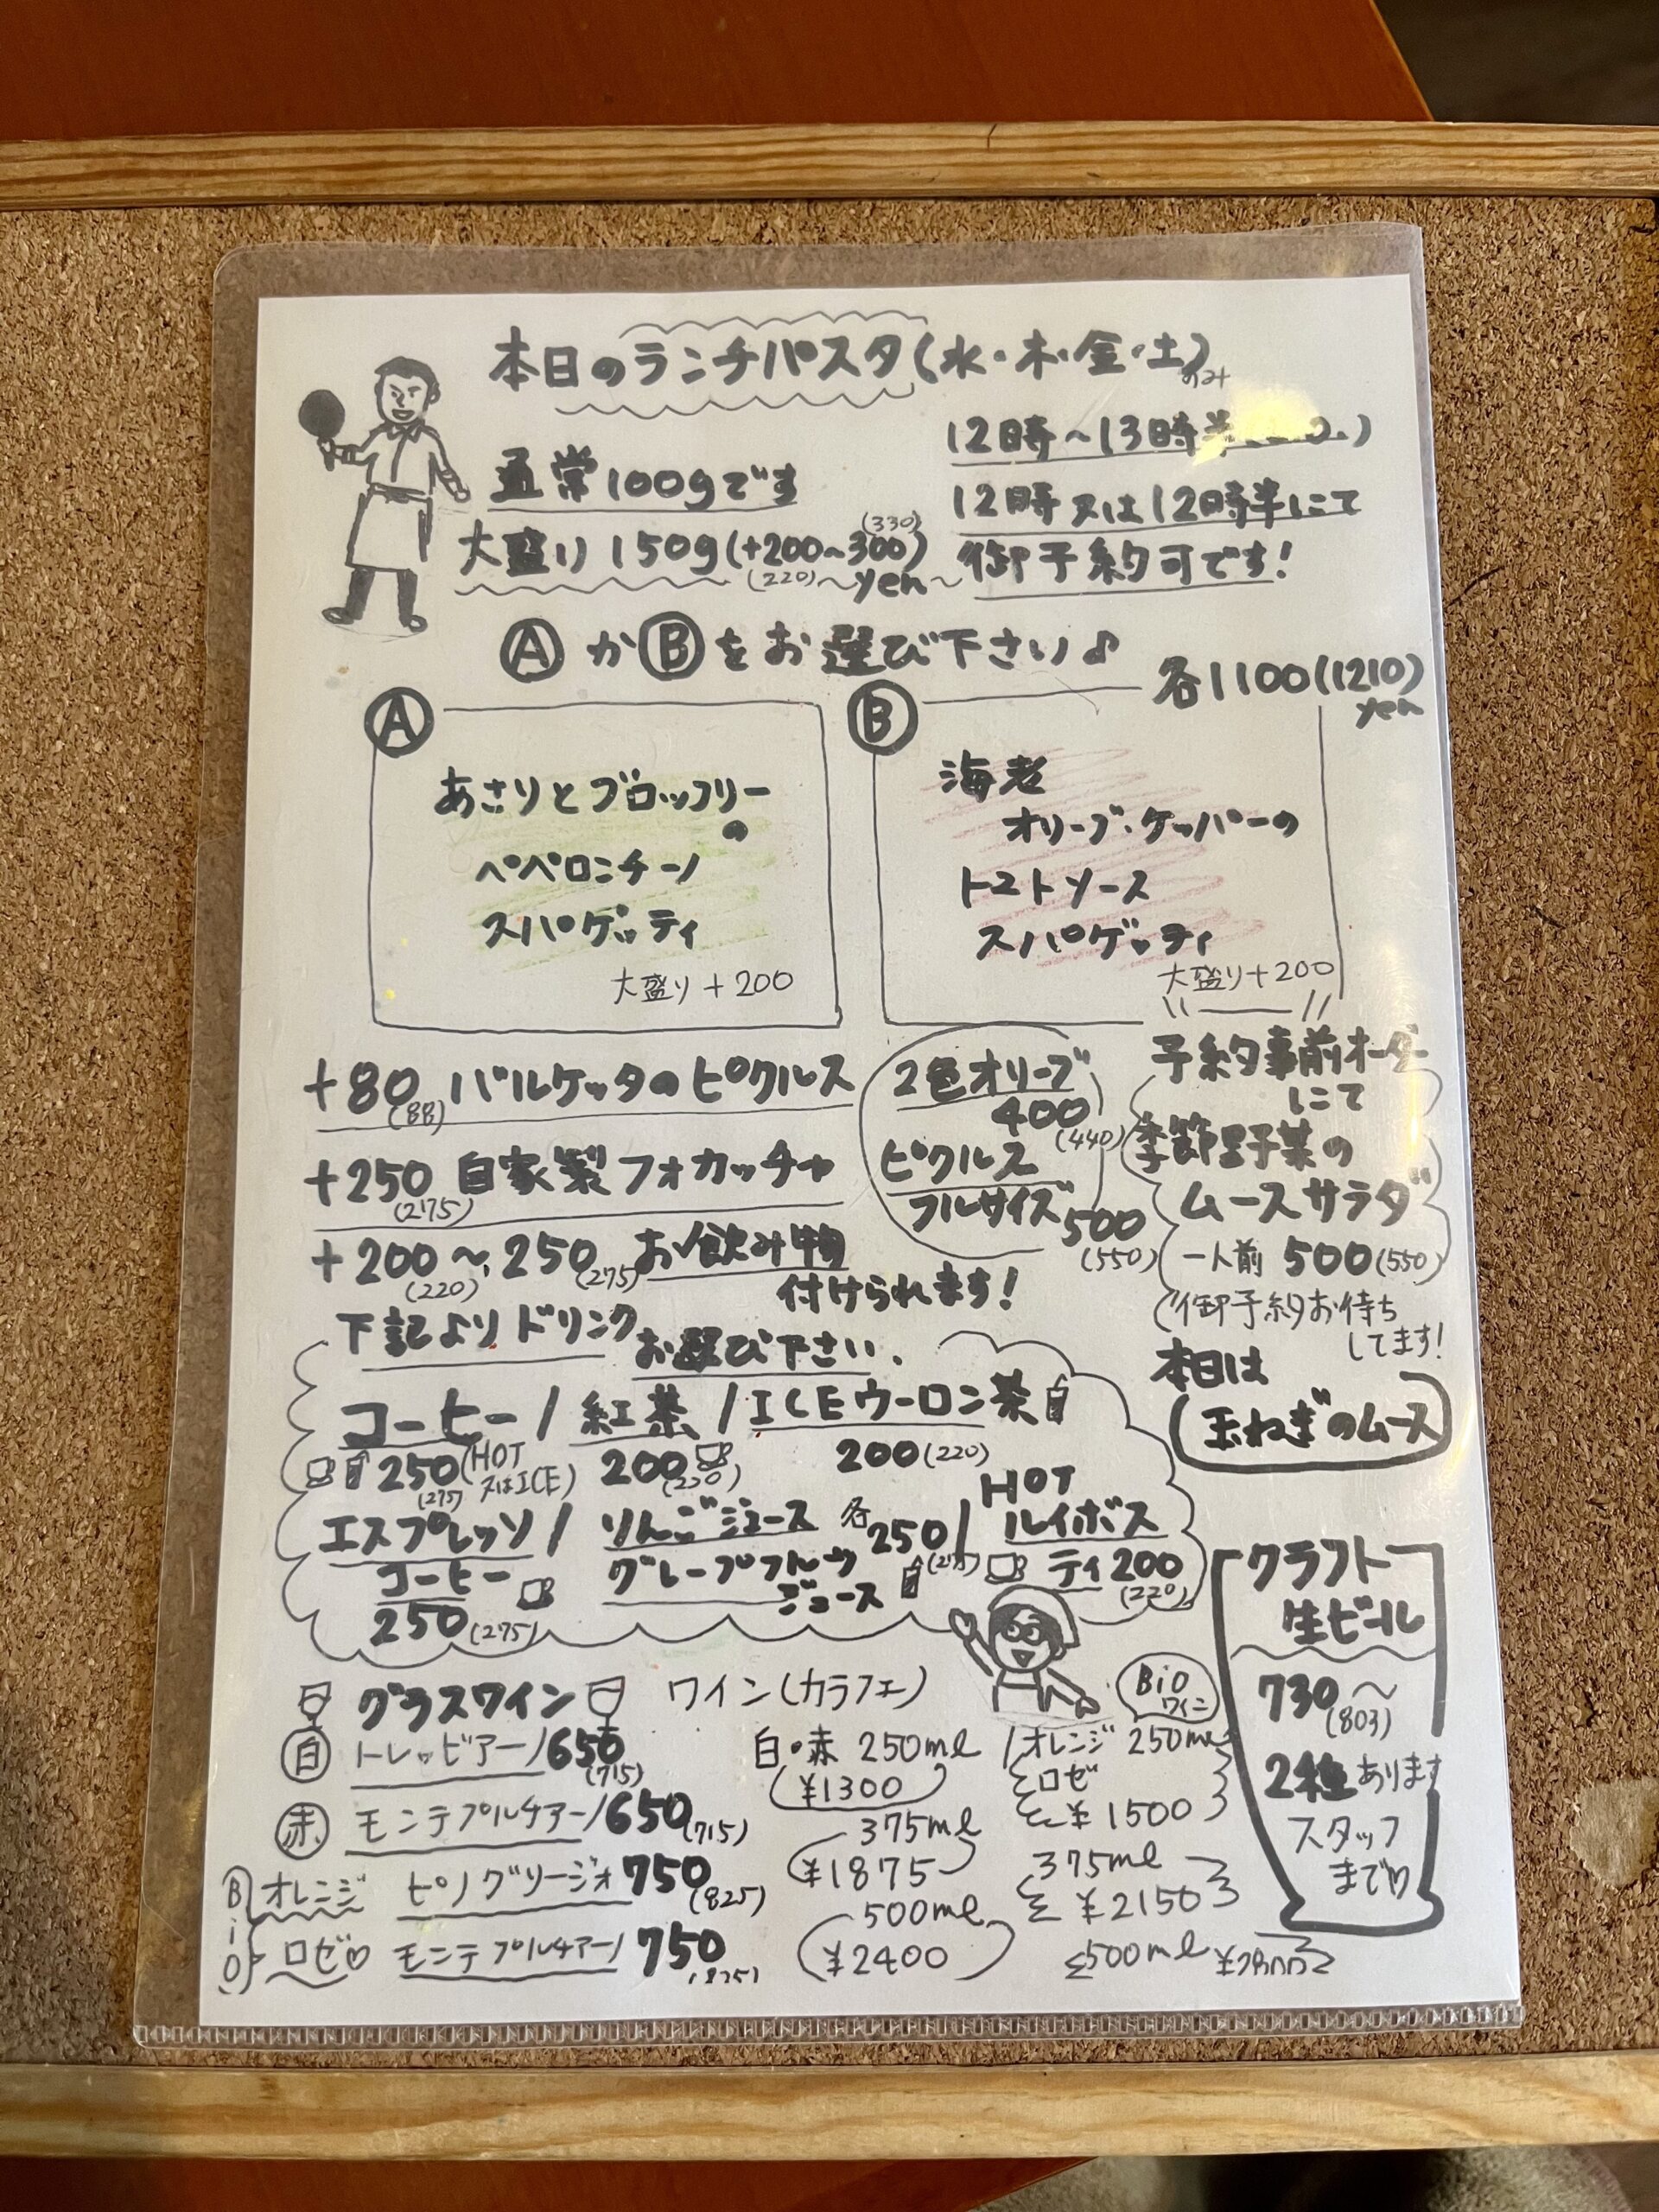 本日のランチパスタ(水・木・金・土)のみ
12時〜13時半
通常100gです
12時又は12時半にて
御予約可です!
大盛り150g(+200〜300)
(330)
(220)
yen
ⒶかⒷをお選び下さい♪
各1100(1210)
yen
Ⓐ
あさりとブロッコリー
の
ペペロンチーノ
スパゲッティ
大盛り+200
Ⓑ
海老
オリーブ・ケッパーの
トマトソース
スパゲッティ
大盛り+200
+80 バルケッタのピクルス
(88)
+250 自家製フォカッチャ
(275)
+200〜250 お飲み物
(220) (275)
付けられます!
2色オリーブ
400
(440)
ピクルス
フルサイズ500
(550)
予約事前オーダー
にて
季節野菜の
ムースサラダ
一人前 500(550)
(御予約お待ち
してます!
本日は
玉ねぎのムース
下記よりドリンク
お選び下さい.
コーヒー/紅茶/ICEウーロン茶
250(HOT
(275) 又はICE)
200
(220)
200(220)
エスプレッソ/
コーヒー
250(275)
りんごジュース
グレープフルーツ
ジュース
各250/
(275)
HOT
ルイボス
ティ200
(220)
クラフト
生ビール
730〜
(803)
2種あります
スタッフ
まで♡
グラスワイン
白 トレッビアーノ/650
(715)
赤 モンテプルチアーノ/650
(715)
Bio
オレンジ ピノグリージオ 750
(825)
ロゼ♡ モンテプルチアーノ/750
(825)
ワイン(カラフェ)
白・赤 250ml
¥1300
375ml
¥1875
500ml
¥2400
Bio
ワイン
/オレンジ 250ml
ロゼ
¥1500
375ml
¥2150
500ml